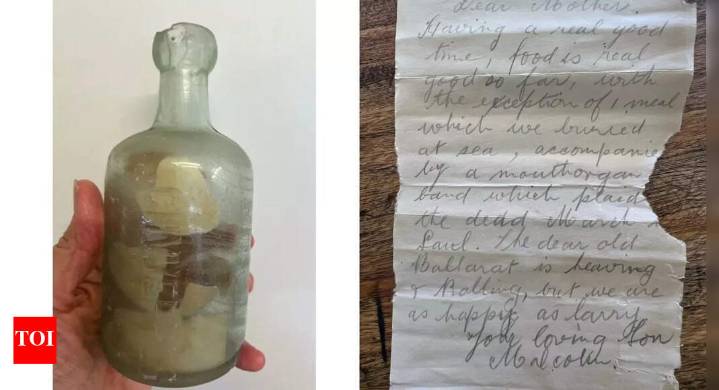 TOI
Dear Mother.
Having a real good
time, food is real
good so far, with
the exception of 1 meal
which we buried
at sea, accompanie
by a mouthorgan
band which plaid
the dead March
Saul. The dear old
Ballarat is heaving
& Rolling, but we are
as happy as larry
Your loving Son
Malcolm.